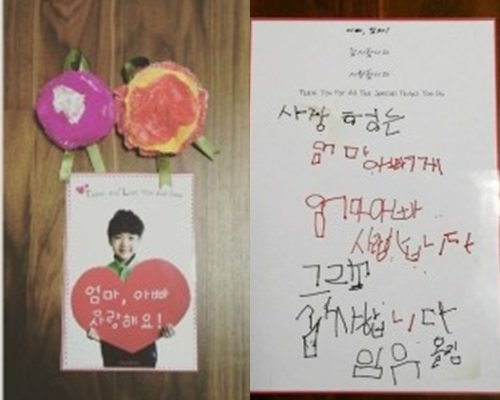 엄마, 아빠
사랑해요!
감사합니다
사랑합니다
Thank You For All The Special Things You Do
사랑하는
엄마아빠에게
엄마아빠
사랑합니다
그리고
감사합니다
임유 올림